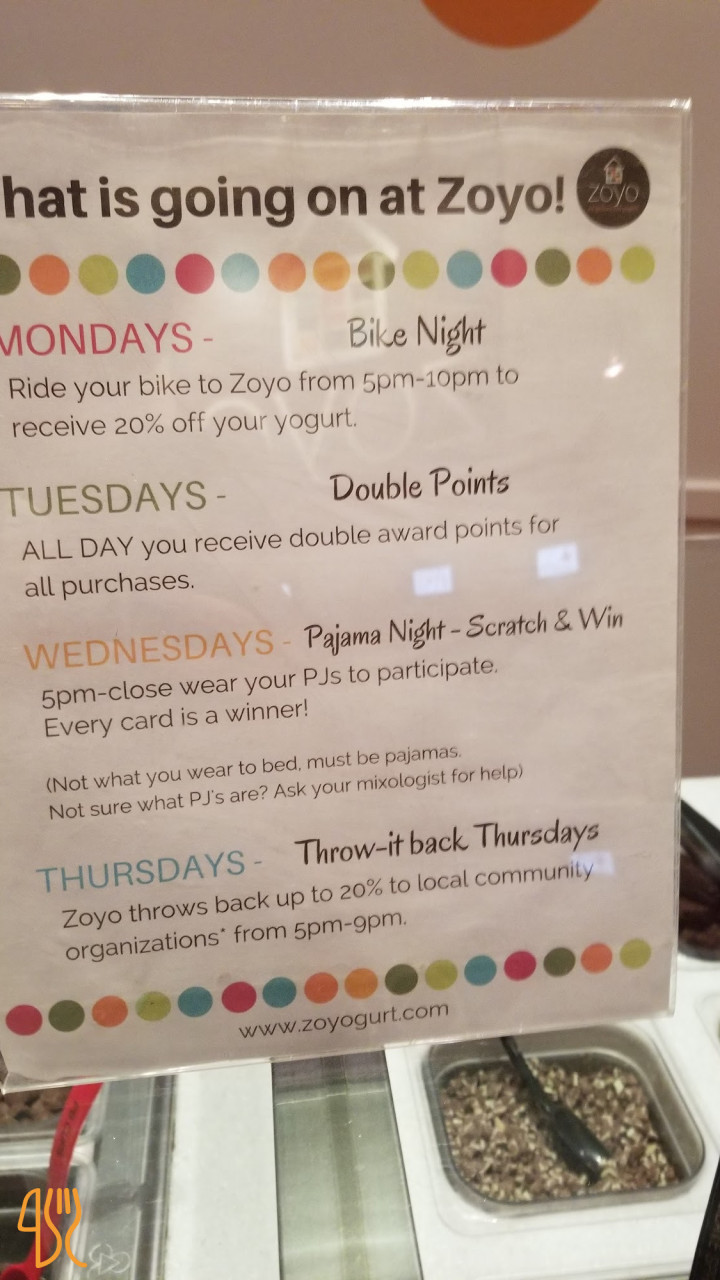 hat is going on at Zoyo!
zoyo
MONDAYS - Bike Night
Ride your bike to Zoyo from 5pm-10pm to
receive 20% off your yogurt.
TUESDAYS - Double Points
ALL DAY you receive double award points for
all purchases.
WEDNESDAYS - Pajama Night - Scratch & Win
5pm-close wear your PJs to participate.
Every card is a winner!
(Not what you wear to bed, must be pajamas.
Not sure what PJ's are? Ask your mixologist for help)
THURSDAYS - Throw-it back Thursdays
Zoyo throws back up to 20% to local community
organizations* from 5pm-9pm.
www.zoyogurt.com